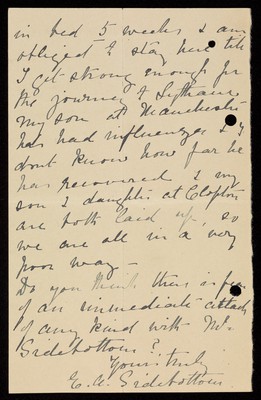 in bed 5 weeks & am
obliged to stay here till
I get strong enough for
the journey to Lytham
My son at Manchester
has had influenza & I
dont know how far he
has recovered & my
son & daughter at Clapton
are both laid up, so
we are all in a very
poor way –
Do you think there is fear
of an immediate attack
of any kind with Mr.
Sidebottom?
Yours truly
E. A. Sidebottom